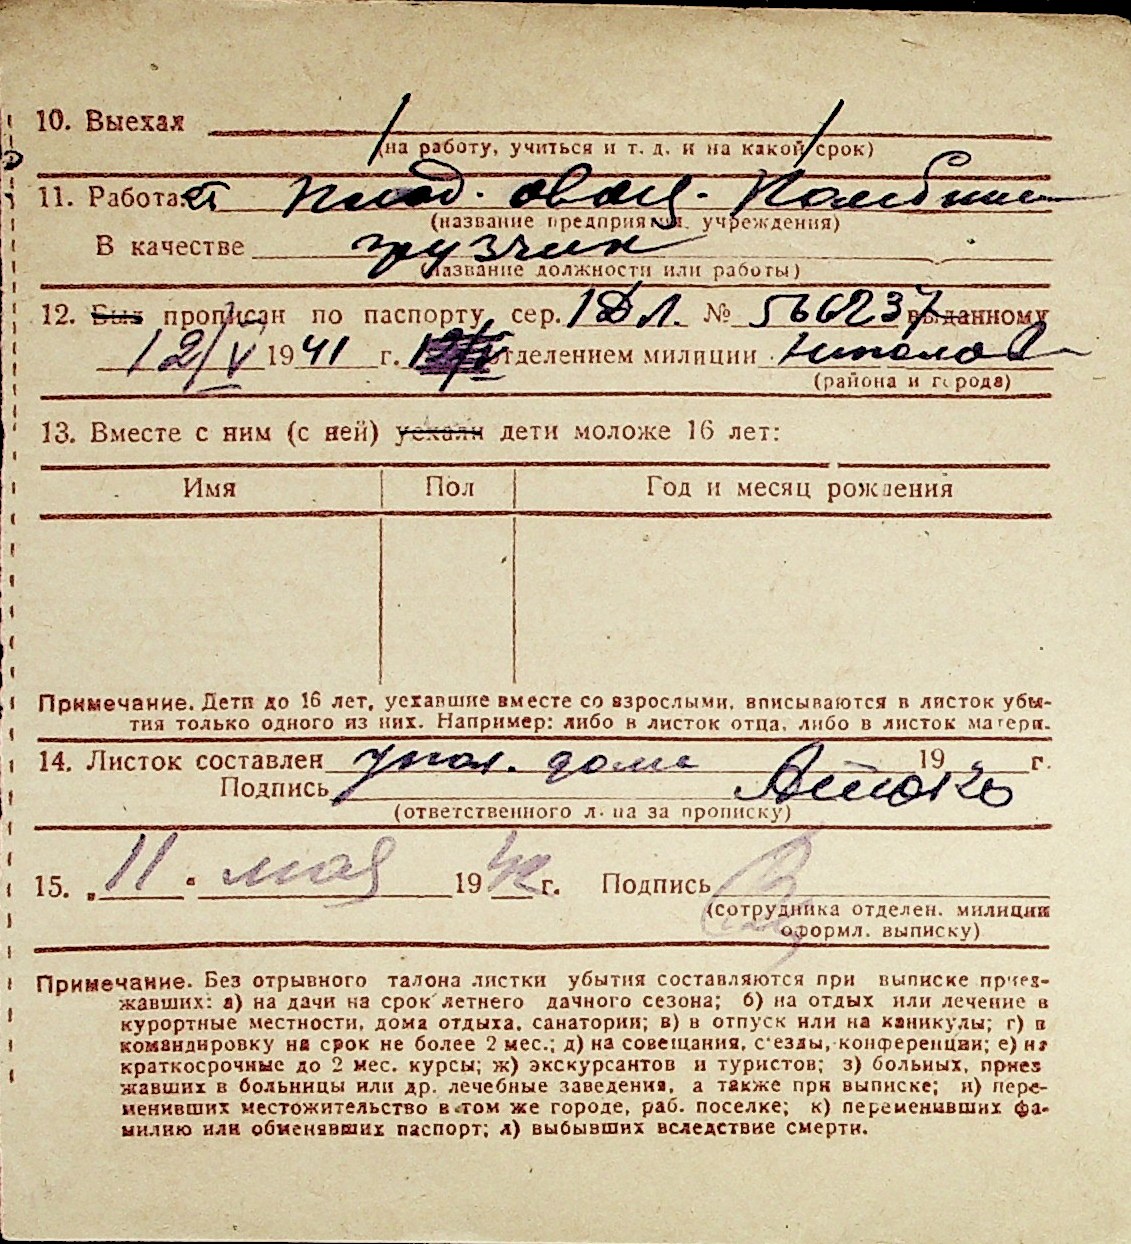 10. Выехал
(на работу, учиться и т. д. и на какой срок)
11. Работает плод. овощ. Комбинат
(название предприятия, учреждения)
В качестве грузчик
(название должности или работы)
12. Был прописан по паспорту сер. 1ДЛ. № 566237 выданному
12/V 1941 г. отделением милиции
(района и города)
13. Вместе с ним (с ней) уехали дети моложе 16 лет:
Имя Пол Год и месяц рождения
Примечание. Дети до 16 лет, уехавшие вместе со взрослыми, вписываются в листок убы-
тия только одного из них. Например: либо в листок отца, либо в листок матери.
14. Листок составлен упол. дома 19 г.
Подпись
(ответственного лица за прописку)
15. „11“ мая 19 г. Подпись
(сотрудника отделен. милиции
оформл. выписку)
Примечание. Без отрывного талона листки убытия составляются при выписке приез-
жавших: а) на дачи на срок летнего дачного сезона; б) на отдых или лечение в
курортные местности, дома отдыха, санатории; в) в отпуск или на каникулы; г) в
командировку на срок не более 2 мес.; д) на совещания, с'езды, конференции; е) на
краткосрочные до 2 мес. курсы; ж) экскурсантов и туристов; з) больных, приез
жавших в больницы или др. лечебные заведения, а также при выписке; и) пере-
менивших местожительство в том же городе, раб. поселке; к) переменивших фа-
милию или обменявших паспорт; л) выбывших вследствие смерти.